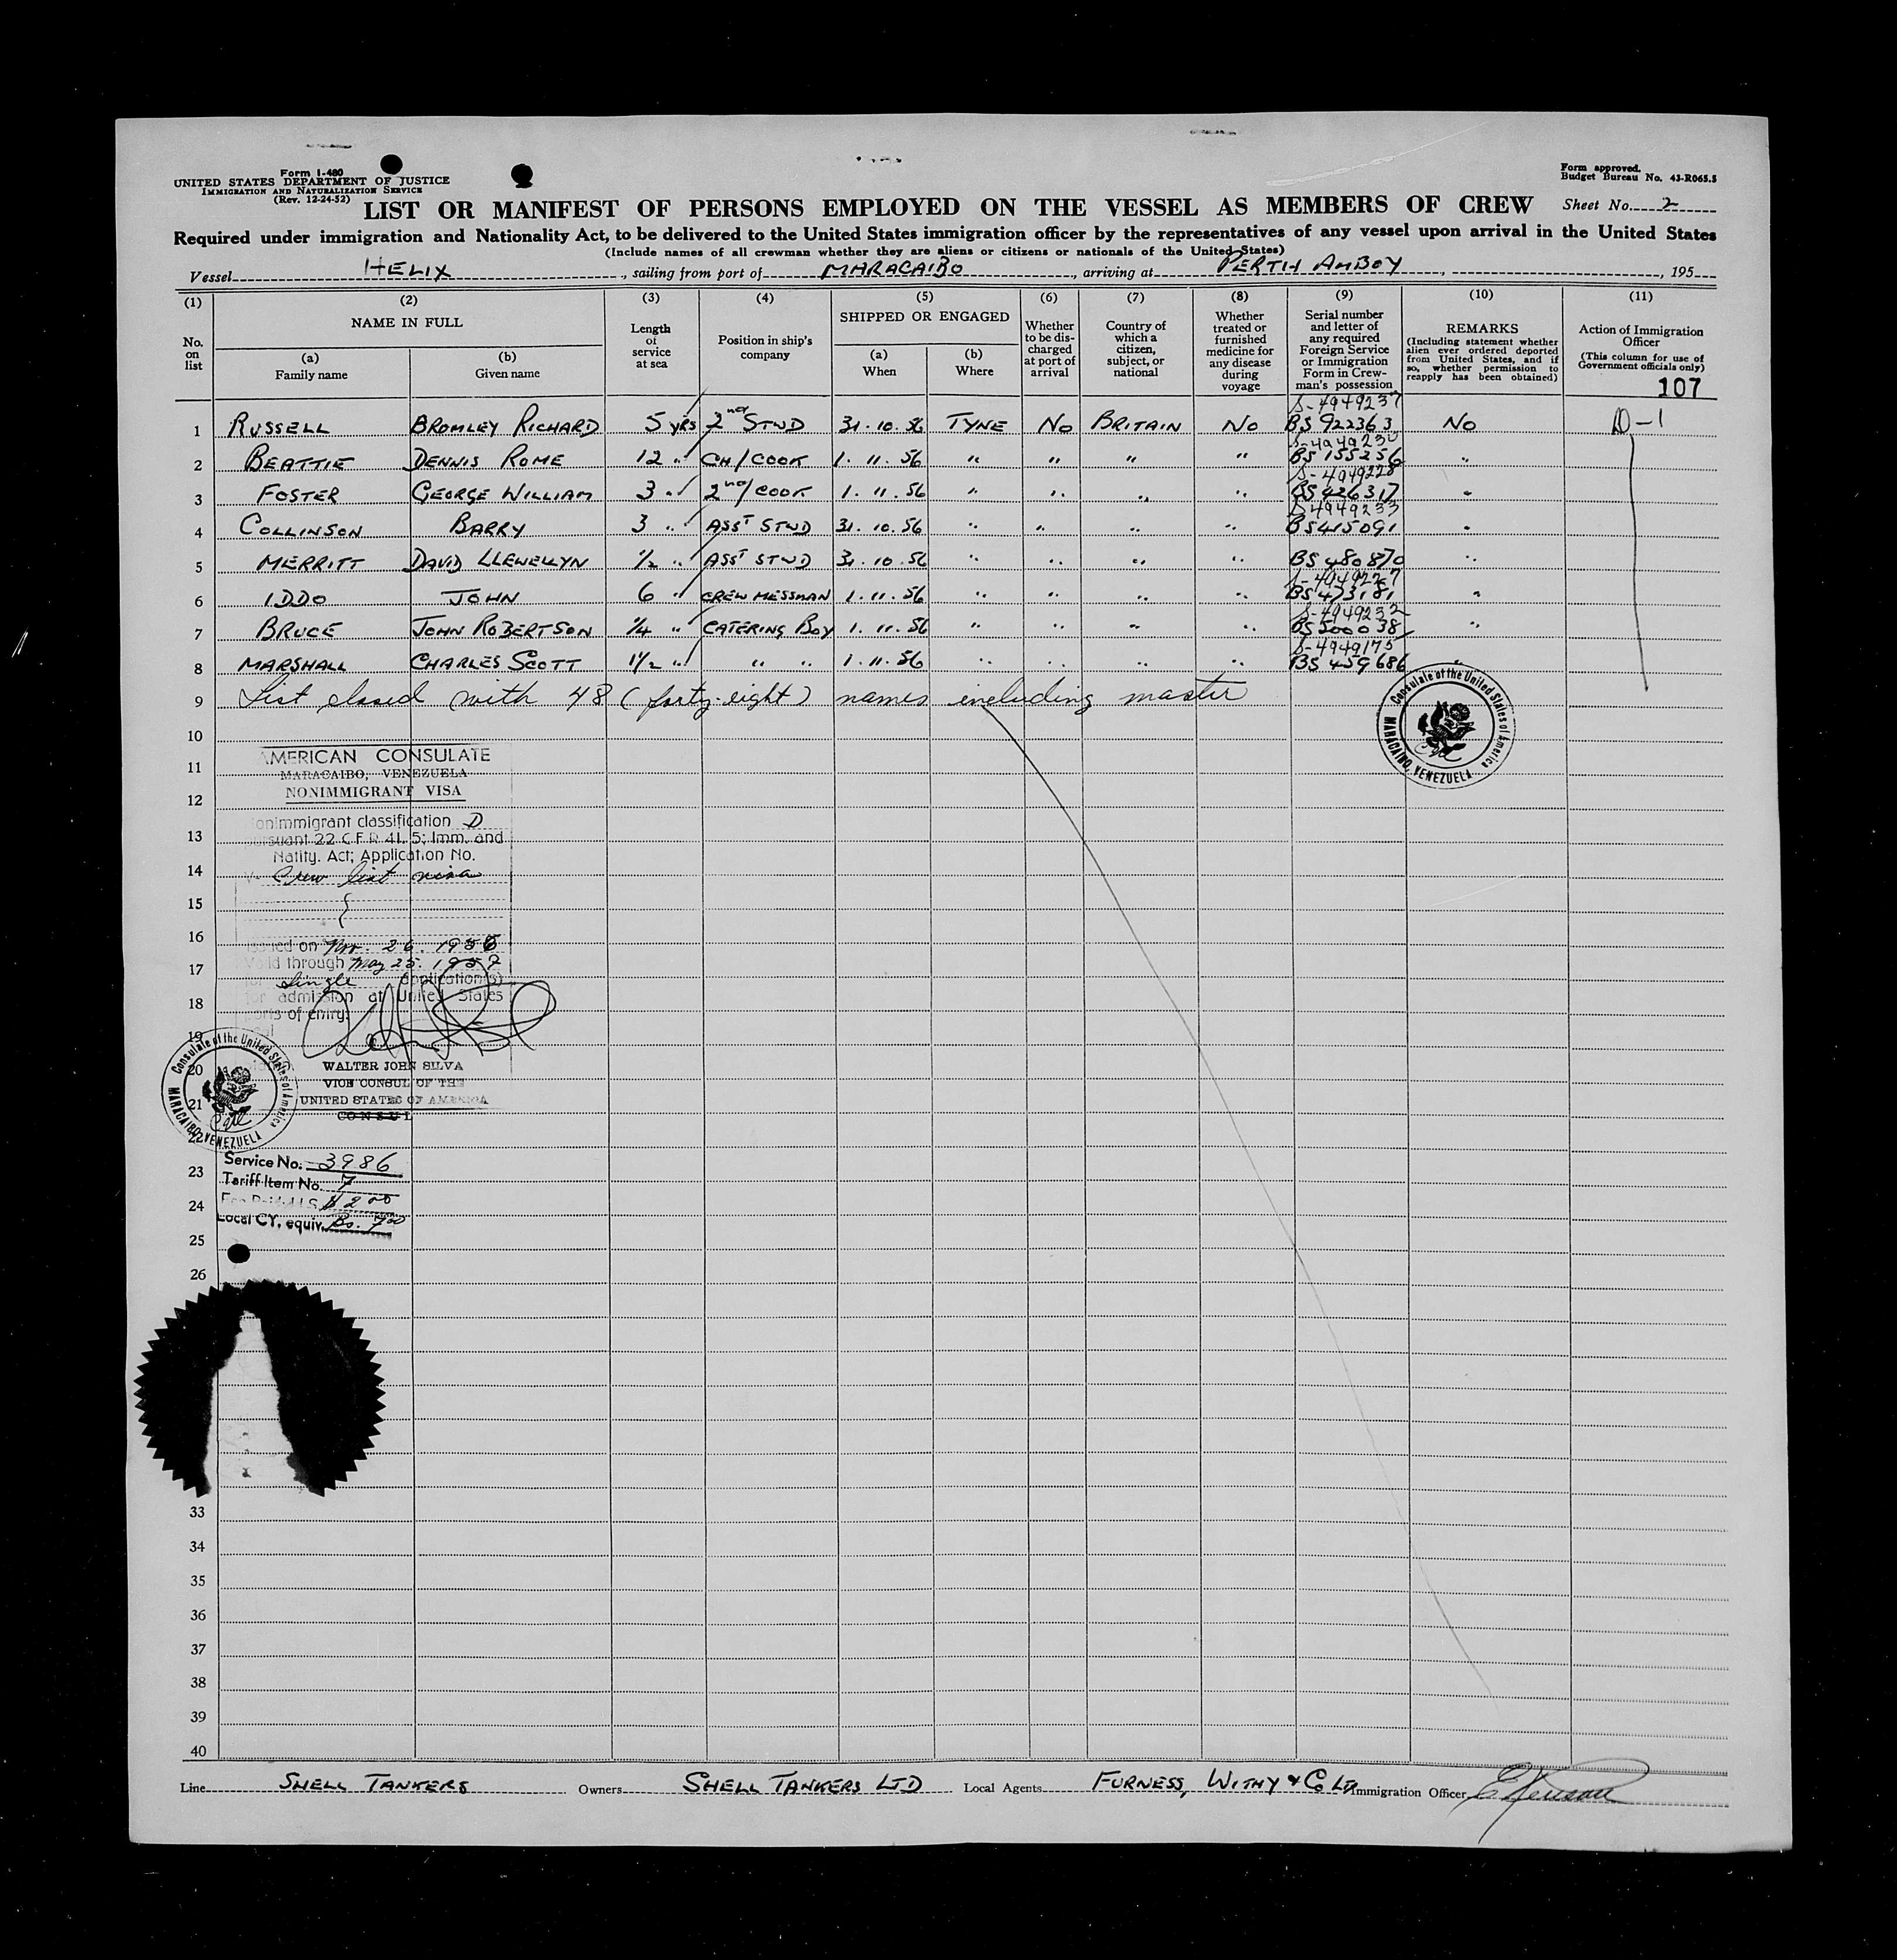 Form I-480
UNITED STATES DEPARTMENT OF JUSTICE
IMMIGRATION AND NATURALIZATION SERVICE
(Rev. 12-24-52)
Form approved.
Budget Bureau No. 43-R065.5
LIST OR MANIFEST OF PERSONS EMPLOYED ON THE VESSEL AS MEMBERS OF CREW Sheet No. 2
Required under immigration and Nationality Act, to be delivered to the United States immigration officer by the representatives of any vessel upon arrival in the United States
(Include names of all crewman whether they are aliens or citizens or nationals of the United States)
Vessel HELIX, sailing from port of MARACAIBO, arriving at PERTH AMBOY, , 195
(1) (2) (3) (4) (5) (6) (7) (8) (9) (10) (11)
No. on list
NAME IN FULL
(a) Family name
(b) Given name
Length of service at sea
Position in ship's company
SHIPPED OR ENGAGED
(a) When
(b) Where
Whether to be discharged at port of arrival
Country of which a citizen, subject, or national
Whether treated or furnished medicine for any disease during voyage
Serial number and letter of any required Foreign Service or Immigration Form in Crewman's possession
REMARKS
(Including statement whether alien ever ordered deported from United States, and if so, whether permission to reapply has been obtained)
Action of Immigration Officer
(This column for use of Government officials only)
107
S-4949237
1 RUSSELL BROMLEY RICHARD 5 YRS 2nd STWD 31.10.56 TYNE NO BRITAIN NO BS 922363 NO D-1
2 BEATTIE DENNIS ROME 12 " CH/COOK 1.11.56 " " " " BS 155256 "
S-4949228
3 FOSTER GEORGE WILLIAM 3 " 2nd/COOK 1.11.56 " " " " BS 426317 "
S-4949233
4 COLLINSON BARRY 3 " ASST STWD 31.10.56 " " " " BS 415091 "
5 MERRITT DAVID LLEWELLYN 1/2 " ASST STWD 31.10.56 " " " " BS 480870 "
S-4949227
6 IDDO JOHN 6 " CREW MESSMAN 1.11.56 " " " " BS 473181 "
S-4949232
7 BRUCE JOHN ROBERTSON 1/4 " CATERING BOY 1.11.56 " " " " BS 500038 "
S-4949175
8 MARSHALL CHARLES SCOTT 1 1/2 " " " 1.11.56 " " " " BS 459686 "
9 List closed with 48 (forty-eight) names including master
Consulate of the United States of America
MARACAIBO, VENEZUELA
10
AMERICAN CONSULATE
11
MARACAIBO, VENEZUELA
NONIMMIGRANT VISA
12
onimmigrant classification D
13
pursuant 22 C.F.R. 41.5; Imm. and
Natlty. Act; Application No.
14
Crew list visa
15
16
Issued on Nov. 26. 1956
17
Valid through May 25. 1957
Single application(s)
18
for admission at United States
ports of entry.
19
20
WALTER JOHN SILVA
VICE CONSUL OF THE
21
UNITED STATES OF AMERICA
CONSUL
Consulate of the United States of America
MARACAIBO, VENEZUELA
22
Service No. 3986
23
Tariff Item No. 7
24
Fee Paid U.S. $ 2.00
Local CY. equiv. Bs. 7.00
25
26
33
34
35
36
37
38
39
40
Line SHELL TANKERS Owners SHELL TANKERS LTD Local Agents FURNESS, WITHY & Co LTD Immigration Officer